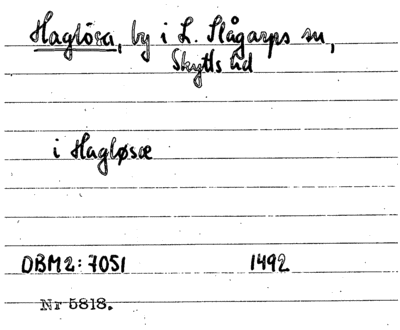 Haglösa, by i L. Slågarps sn,
Skytts hd
i Hagløsæ
DBM2:7051 1492
Nr 5818.